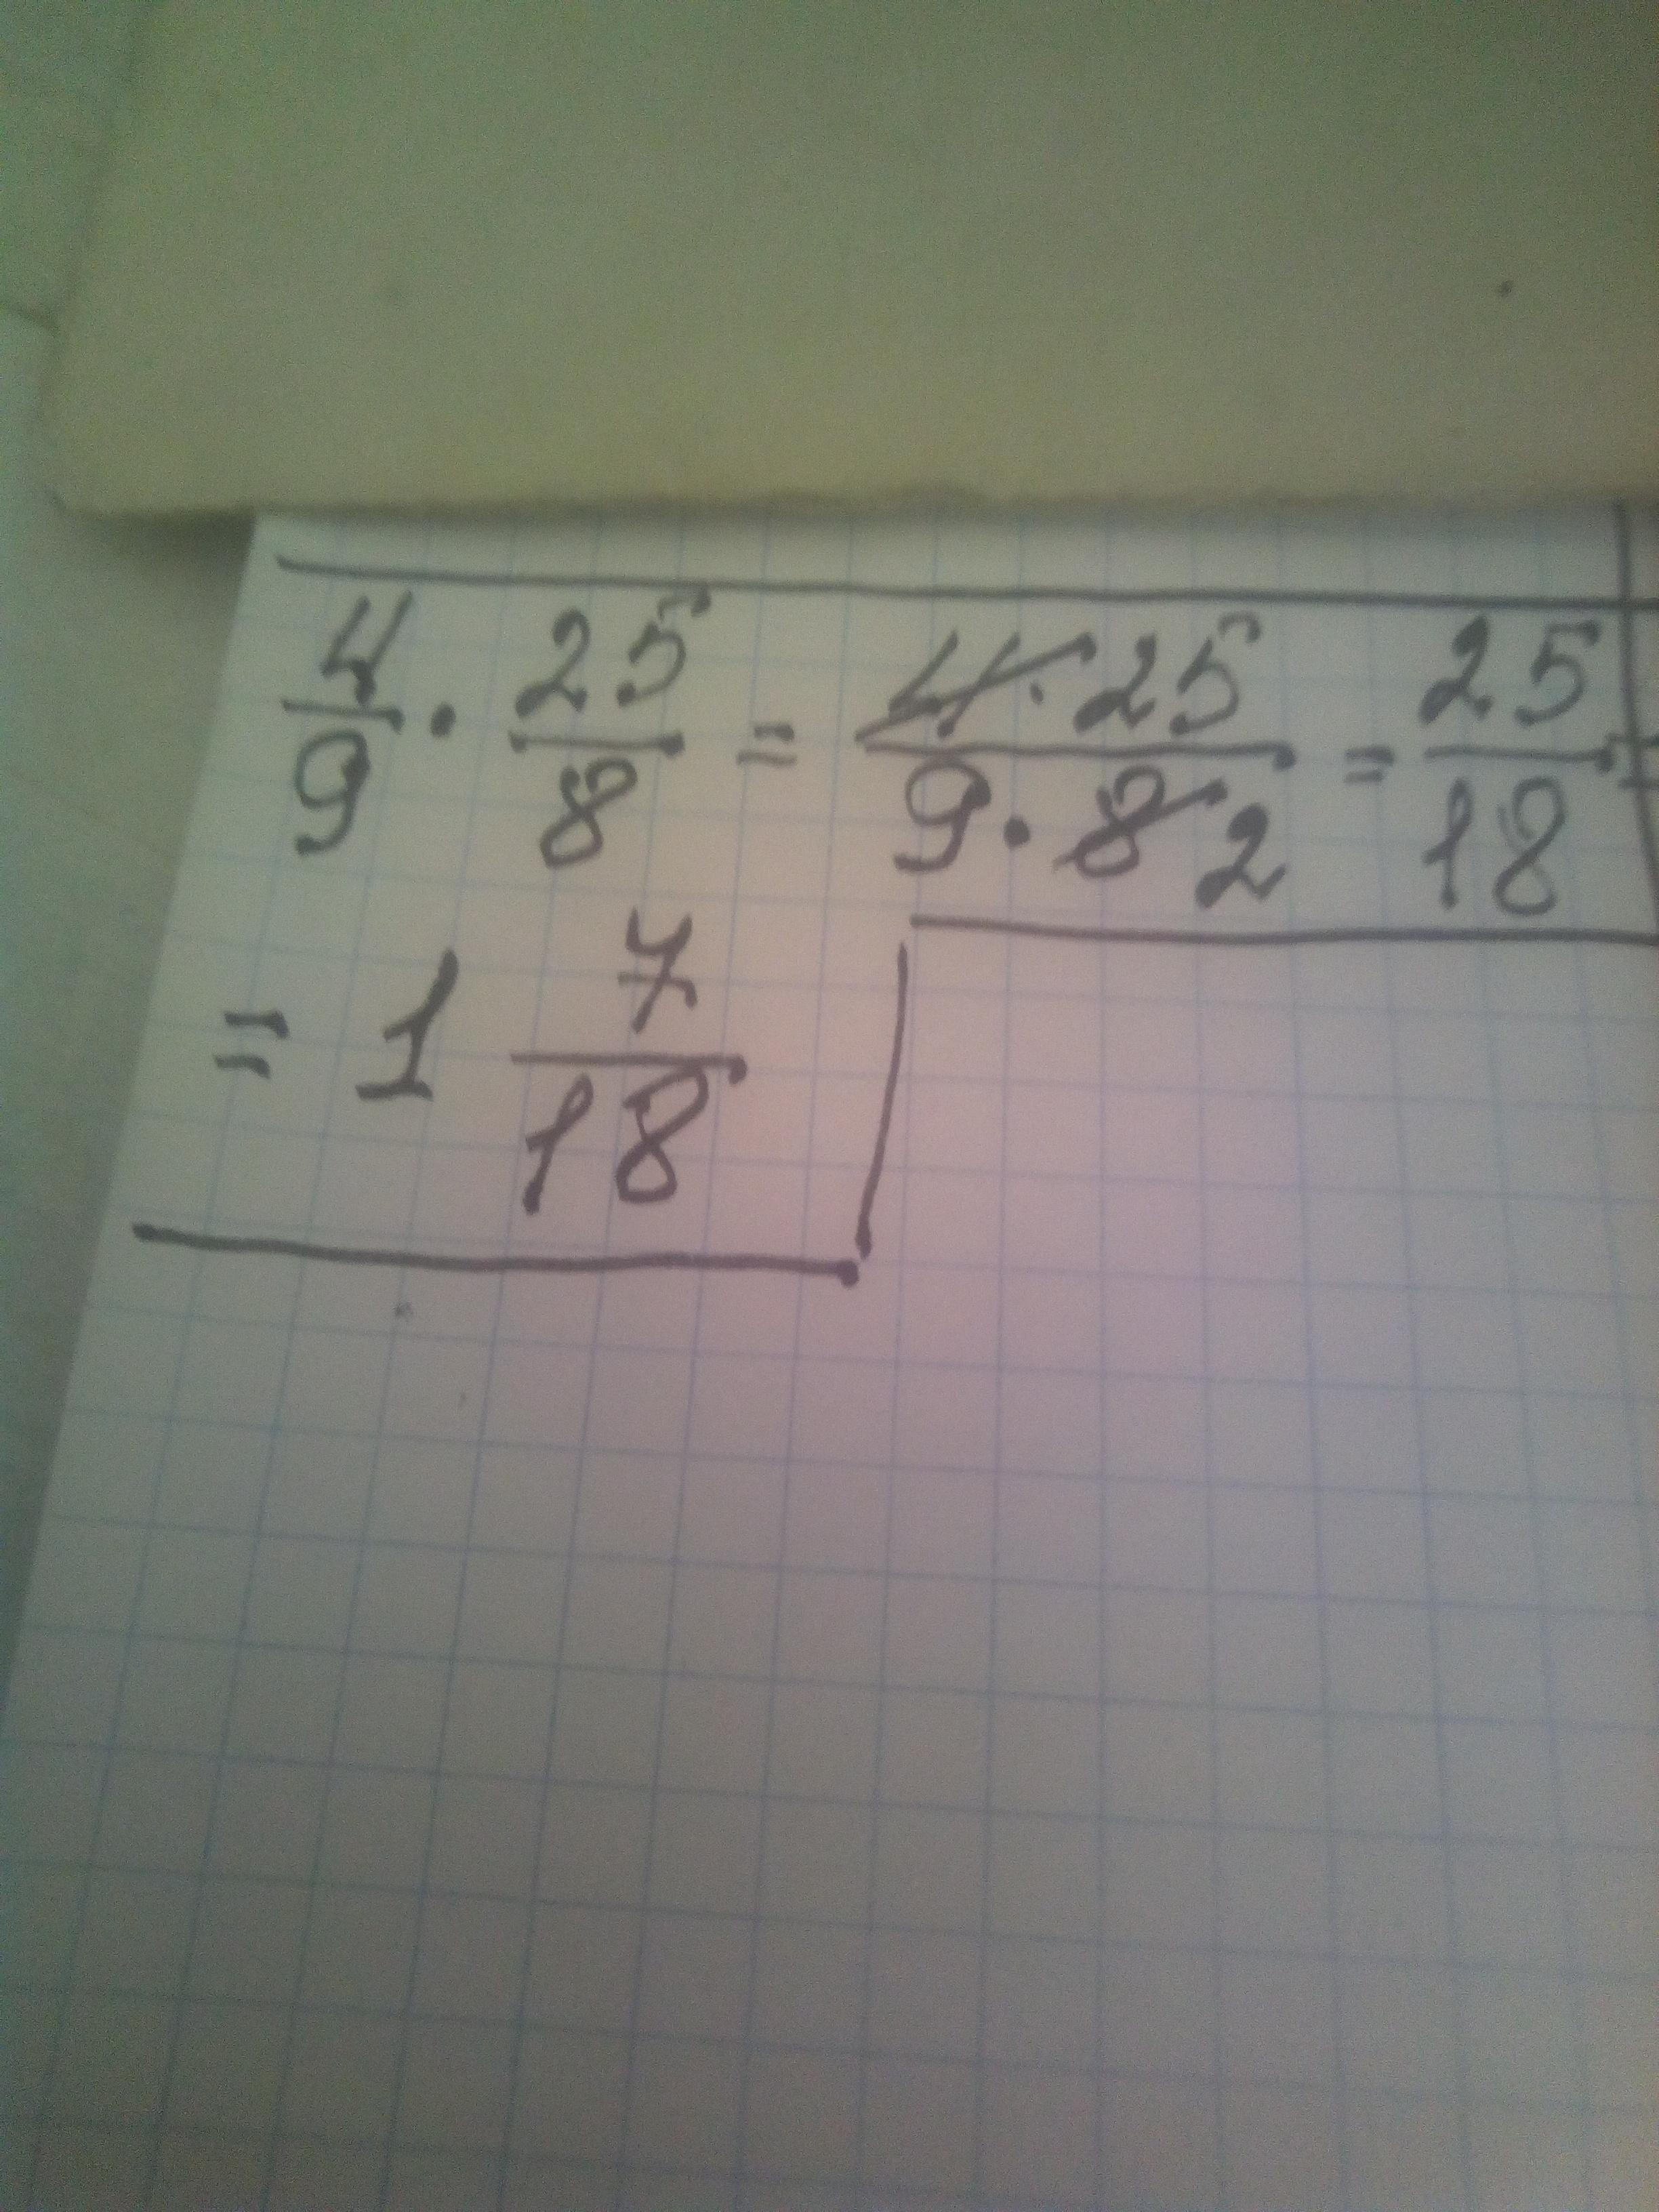 4/9 · 25/8 = 4·25/9·8 2 = 25/18 =
= 1 7/18